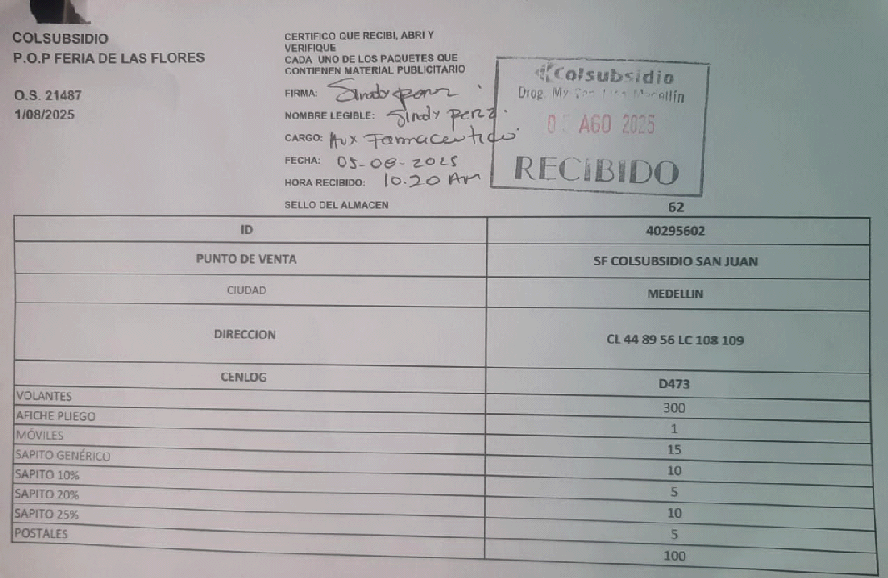 COLSUBSIDIO
P.O.P FERIA DE LAS FLORES
O.S. 21487
1/08/2025
CERTIFICO QUE RECIBI, ABRI Y
VERIFIQUE
CADA UNO DE LOS PAQUETES QUE
CONTIENEN MATERIAL PUBLICITARIO
FIRMA: Sindy perez
NOMBRE LEGIBLE: Sindy perez.
CARGO: Aux Farmaceutico
FECHA: 05-08-2025
HORA RECIBIDO: 10:20 Am
SELLO DEL ALMACEN
Colsubsidio
Drog. Medellin
AGO 2025
RECIBIDO
62
ID 40295602
PUNTO DE VENTA SF COLSUBSIDIO SAN JUAN
CIUDAD MEDELLIN
DIRECCION CL 44 89 56 LC 108 109
CENLOG D473
VOLANTES 300
AFICHE PLIEGO 1
MÓVILES 15
SAPITO GENÉRICO 10
SAPITO 10% 5
SAPITO 20% 10
SAPITO 25% 5
POSTALES 100